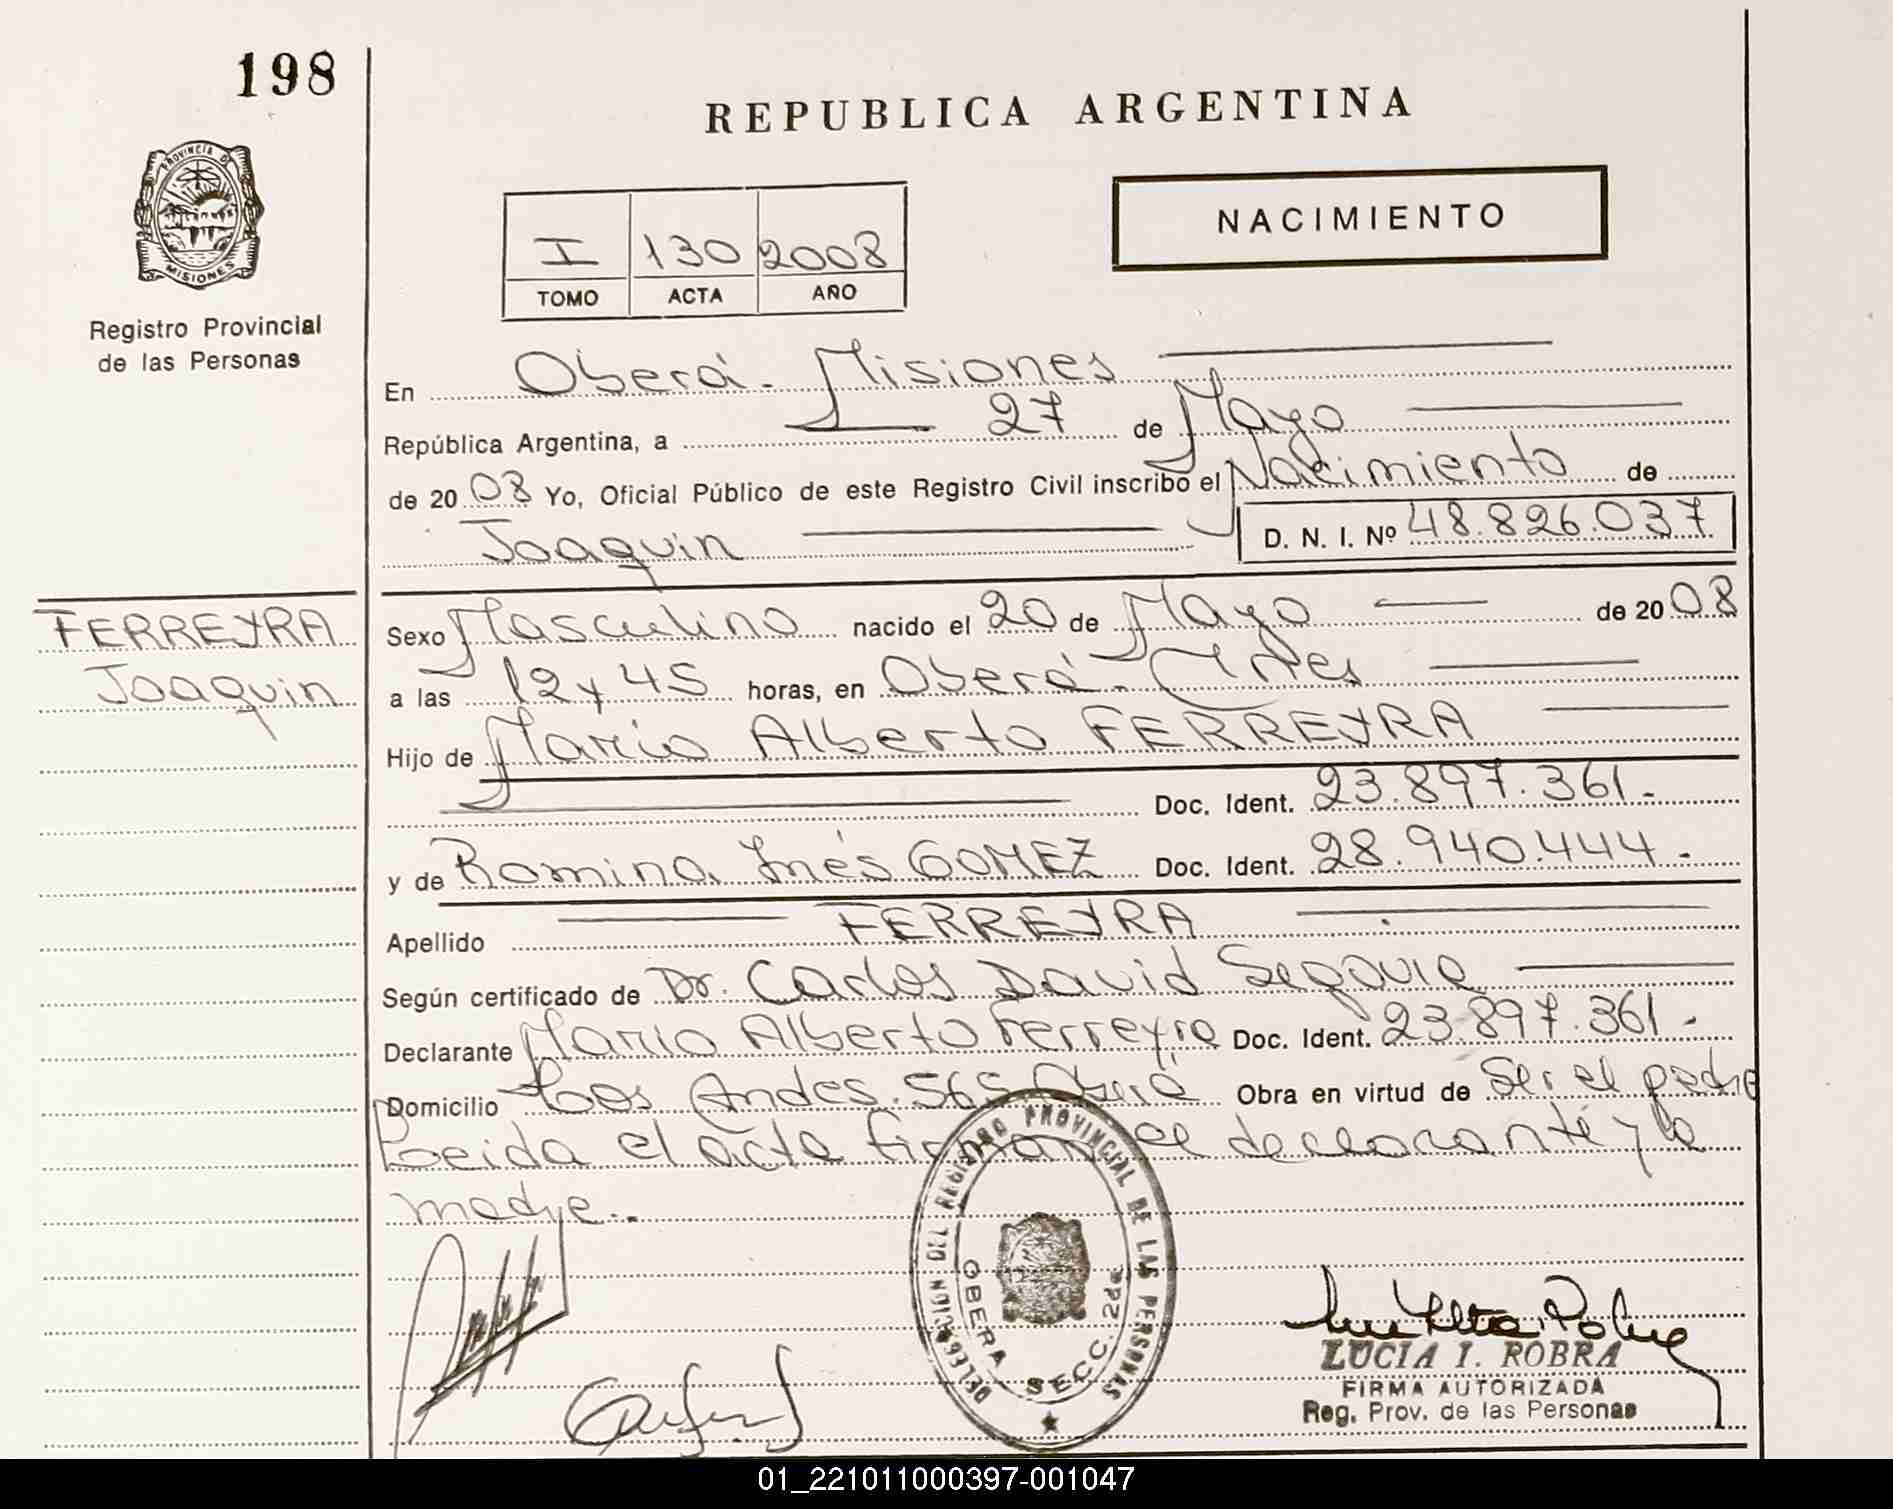 198
REPUBLICA ARGENTINA
PROVINCIA DE
MISIONES
NACIMIENTO
I 130 2008
TOMO ACTA AÑO
Registro Provincial
de las Personas
En Oberá - Misiones
República Argentina, a 27 de Mayo
de 2008 Yo, Oficial Público de este Registro Civil inscribo el Nacimiento de
Joaquin D. N. I. Nº 48.826.037
FERREYRA
Joaquin
Sexo Masculino nacido el 20 de Mayo de 2008
a las 12 y 45 horas, en Oberá - Mnes
Hijo de Mario Alberto FERREYRA
Doc. Ident. 23.897.361.-
y de Romina Inés GOMEZ Doc. Ident. 28.940.444.-
Apellido FERREYRA
Según certificado de Dr. Carlos David Segovia
Declarante Mario Alberto Ferreyra Doc. Ident. 23.897.361.-
Domicilio Los Andes 565 Oberá Obra en virtud de Ser el padre
Leida el acta firman el declarante y la
madre.-
DELEGACION DEL REGISTRO PROVINCIAL DE LAS PERSONAS
OBERA SECC. 2da
LUCIA I. ROBRA
FIRMA AUTORIZADA
Reg. Prov. de las Personas
01_221011000397-001047